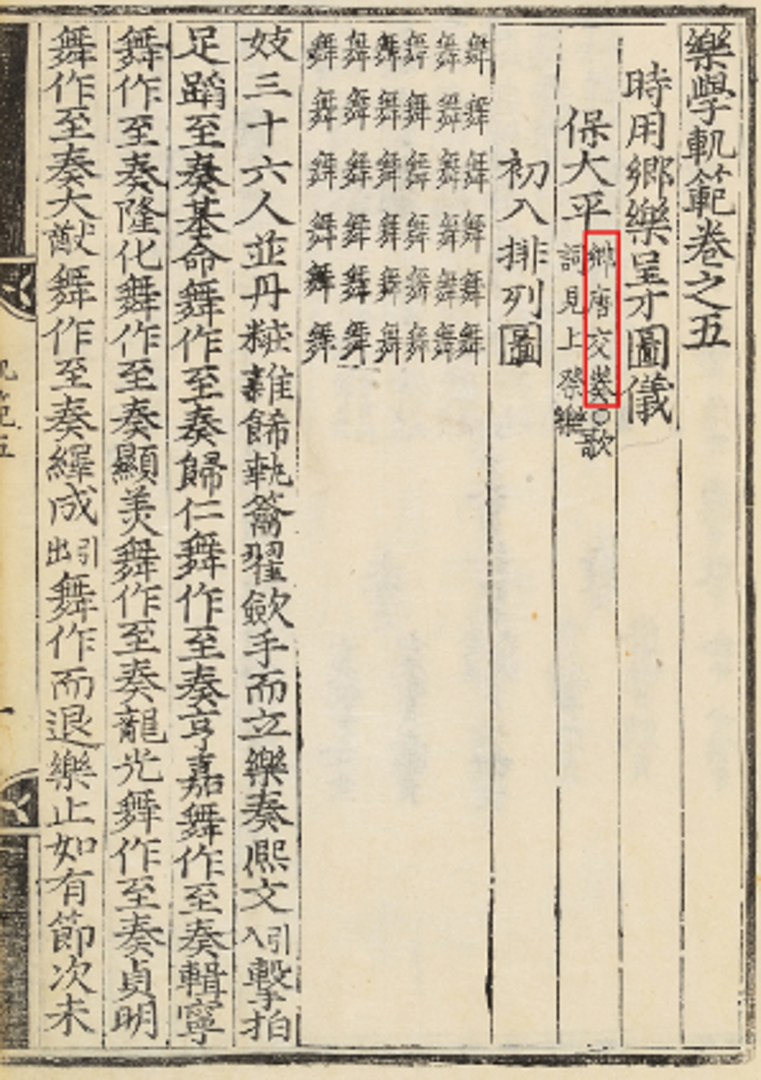 樂學軌範卷之五
時用鄉樂呈才圖儀
保大平
鄉唐交奏○歌
詞見上祭樂
初入排列圖
舞舞舞舞舞舞
舞舞舞舞舞舞
舞舞舞舞舞舞
舞舞舞舞舞舞
舞舞舞舞舞舞
舞舞舞舞舞舞
妓三十六人並丹粧雜餙執籥翟斂手而立樂奏熈文引入擊拍
足蹈至奏基命舞作至奏歸仁舞作至奏亨嘉舞作至奏輯寧
舞作至奏隆化舞作至奏顯美舞作至奏龍光舞作至奏貞明
舞作至奏大猷舞作至奏繹成引出舞作而退樂止如有節次未
軌範五
一